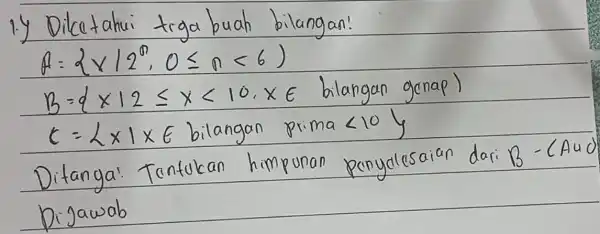 1.y Diketahui tiga buah bilangan!
A = {x | 2ⁿ, 0 ≤ n < 6)
B = { x | 2 ≤ x < 10, x ∈ bilangan genap)
C = { x | x ∈ bilangan prima < 10 }
Ditanya! Tentukan himpunan penyelesaian dari B - (A u C)
Dijawab